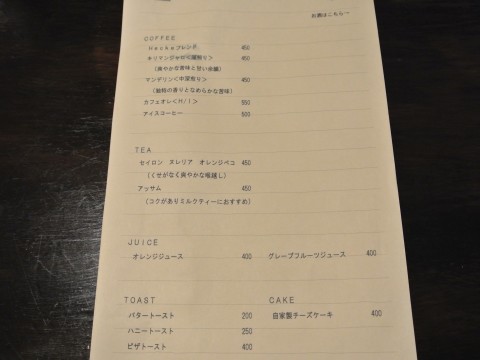 お酒はこちら→
COFFEE
ブレンド 450
キリマンジャロ＜深煎り＞ 450
(爽やかな苦味と甘い余韻)
マンデリン＜中深煎り＞ 450
(独特の香りとなめらかな苦味)
カフェオレ＜H/I＞ 550
アイスコーヒー 500
TEA
セイロン ヌレリア オレンジペコ 450
(くせがなく爽やかな喉越し)
アッサム 450
(コクがありミルクティーにおすすめ)
JUICE
オレンジジュース 400 グレープフルーツジュース 400
TOAST CAKE
バタートースト 200 自家製チーズケーキ 400
ハニートースト 250
ピザトースト 400